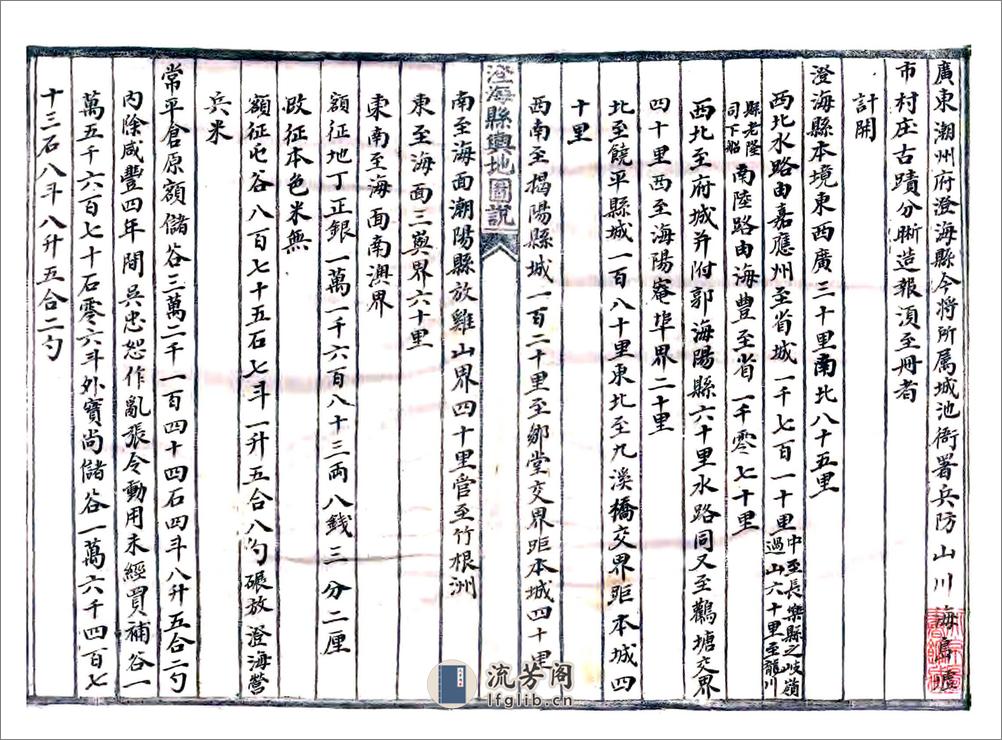 廣東潮州府澄海縣今將所属城池衙署兵防山川海島墟
市村庄古蹟分晰造報湏至冊者
計開
澄海縣本境東西廣三十里南北八十五里
西北水路由嘉應州至省城一千七百一十里中至長樂縣之岐嶺過山六十里至龍川
縣老隆司下船南陸路由海豊至省一千零七十里
西北至府城并附郭海陽縣六十里水路同又至鸛塘交界
四十里西至海陽菴埠界二十里
北至饒平縣城一百八十里東北至九溪橋交界距本城四
十里
澄海縣輿地圖說
西南至揭陽縣城一百二十里至鄒堂交界距本城四十里
南至海面潮陽縣放雞山界四十里營至竹根洲
東至海面三嶴界六十里
東南至海面南澳界
額征地丁正銀一萬一千六百八十三両八錢三分二厘
改征本色米無
額征屯谷八百七十五石七斗一升五合八勺碾放澄海營
兵米
常平倉原額儲谷三萬二千一百四十四石四斗八升五合二勺
內除咸豐四年間吳忠恕作亂張令動用未經買補谷一
萬五千六百七十石零六斗外寶尚儲谷一萬六千四百七
十三石八斗八升五合二勺
流芳阁
lfglib.cn